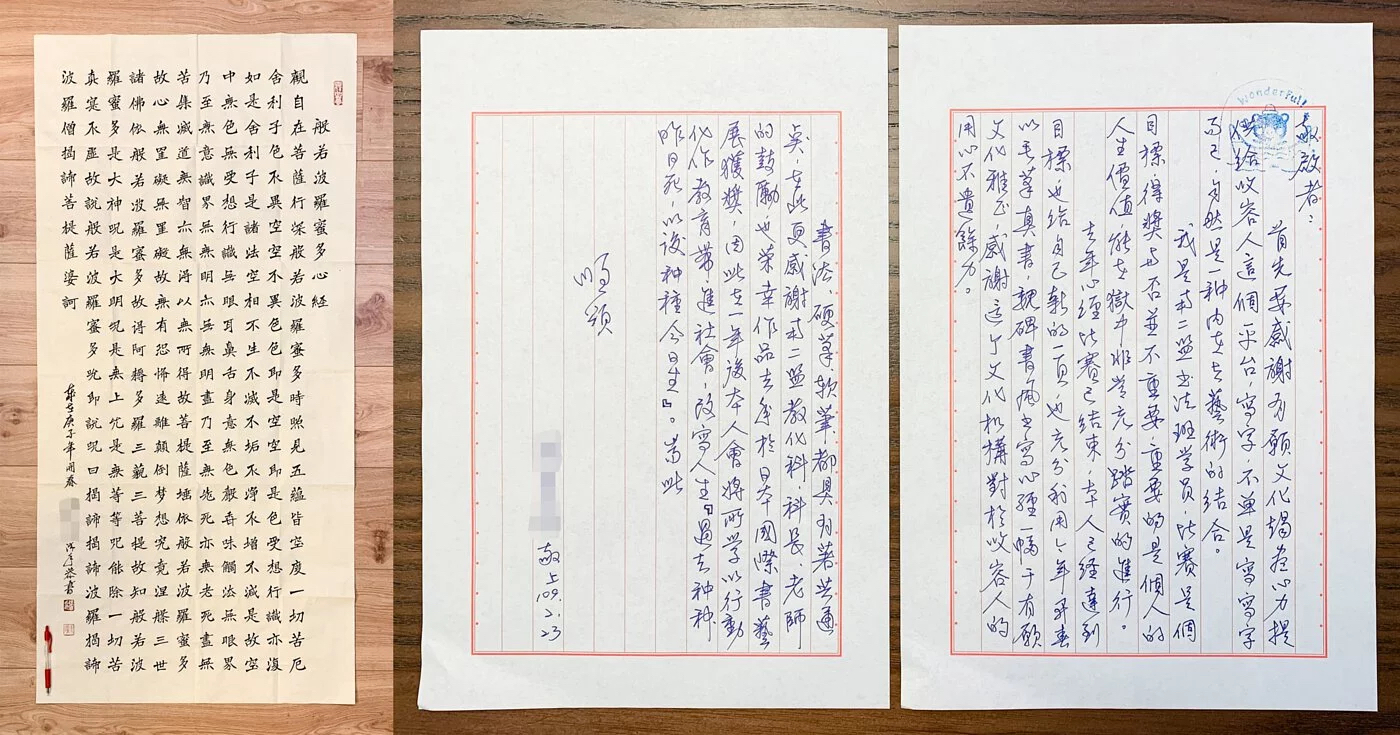 般若波羅蜜多心経
觀自在菩薩行深般若波羅蜜多時照見五蘊皆空度一切苦厄
舍利子色不異空空不異色色即是空空即是色受想行識亦復
如是舍利子是諸法空相不生不滅不垢不淨不增不減是故空
中無色無受想行識無眼耳鼻舌身意無色聲香味觸法無眼界
乃至無意識界無無明亦無無明盡乃至無老死亦無老死盡無
苦集滅道無智亦無得以無所得故菩提薩埵依般若波羅蜜多
故心無罣礙無罣礙故無有恐怖遠離顛倒梦想究竟涅槃三世
諸佛依般若波羅蜜多故得阿耨多羅三藐三菩提故知般若波
羅蜜多是大神呪是大明呪是無上呪是無等等呪能除一切苦
真實不虛故說般若波羅蜜多呪即說呪曰揭諦揭諦波羅揭諦
波羅僧揭諦菩提薩婆訶
歲在庚子年開春
沐手恭書
Wonderful!
敬啟者：
首先要感謝有願文化竭盡心力提
供給收容人這個平台，寫字不單是寫寫字
而已，自然是一種內在去藝術的結合。
我是南二監书法班学员，比賽是個
目標，得獎与否並不重要，重要的是個人的
人生價值，能在獄中非常充分踏實的進行。
去年心經比賽已結束，本人已經達到
目標，也給自己新的一頁，也充分利用今年開春
以毛筆真書，魏碑書風书寫心經一幅于有願
文化雅正，感謝這个文化机構對於收容人的
用心不遺餘力。
書法，硬筆軟筆，都具有著共通
点，在此更感謝南二監教化科，科長、老師
的鼓勵，也荣幸作品去參於日本國際書藝
展獲獎，因此在一年後本人會將所学以行動
化作教育帶進社會，改寫人生『過去种种
昨日死，以後种種今日生』。耑此
順頌
敬上109.2.23